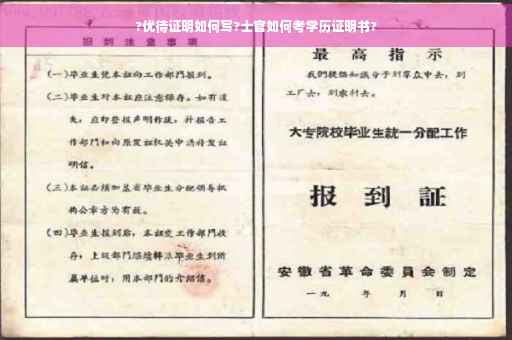 ?优待证明如何写?士官如何考学历证明书?
报到注意事项
(一)毕业生凭本证向工作部门报到。
(二)毕业生对本证应注意保存。如有遗
失，应即登报声明作废，并报告工
作部门和向原发证机关申请补发证
明信。
(三)本证必须加盖省毕业生分配领导机
构公章方为有效。
(四)毕业生报到后，本证交工作部门收
存，上级部门继续转派毕业生到所
属单位时，用本部门的介绍信。
最高指示
我们提倡知识分子到群众中去，到
工厂去，到农村去。
大专院校毕业生统一分配工作
报到证
安徽省革命委员会制定
一九 年 月 日